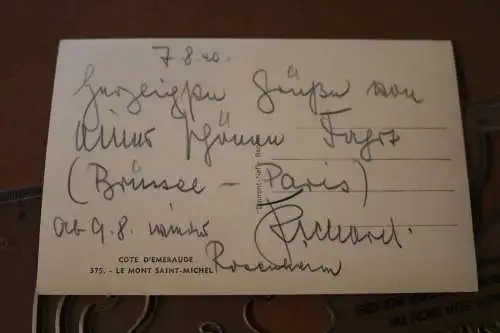 7 8 40.
Herzliche Grüße von
einer schönen Fahrt
(Brüssel - Paris)
Ab 9.8. wieder
Richard.
Rosenheim
COTE D'EMERAUDE
375. - LE MONT SAINT-MICHEL